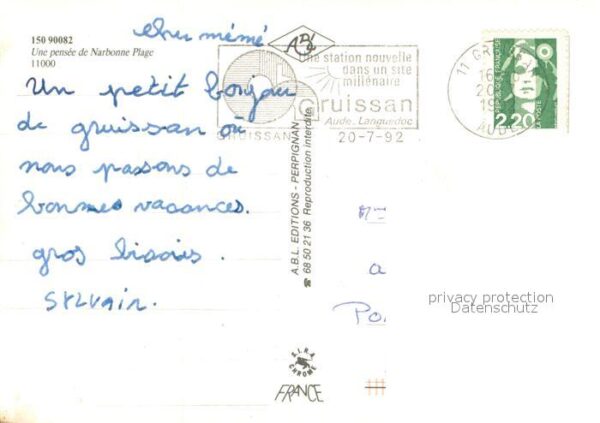 150 90082
Une pensée de Narbonne Plage
11000
cher mémé
Un petit bonjour
de gruissan où
nous passons de
bonnes vacances.
gros bisois.
SYLVAIN.
ABL
Une station nouvelle
dans un site
millénaire
Gruissan
Aude. Languedoc
GRUISSAN
20-7-92
A.B.L. EDITIONS - PERPIGNAN
☎ 68 50 21 36 Reproduction interdite
S.I.R.A
CHROME
FRANCE
11
16
20
19
AUDE
REPUBLIQUE FRANÇAISE
LA POSTE
2,20
privacy protection
Datenschutz